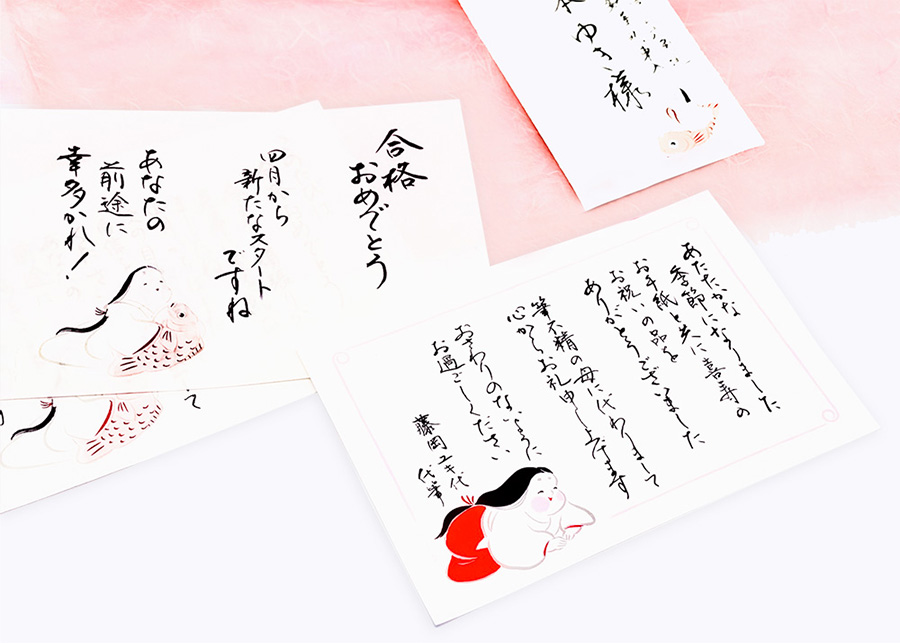 合格
おめでとう
四月から
新たなスタート
ですね
あなたの
前途に
幸多かれ！
ゆき様
あたたかな
季節になりました
お手紙と共に喜寿の
お祝いの品を
ありがとうございました
筆不精の母に代わりまして
心からお礼申し上げます
おさわりのないように
お過ごしください
藤岡ユキ代
代筆
て